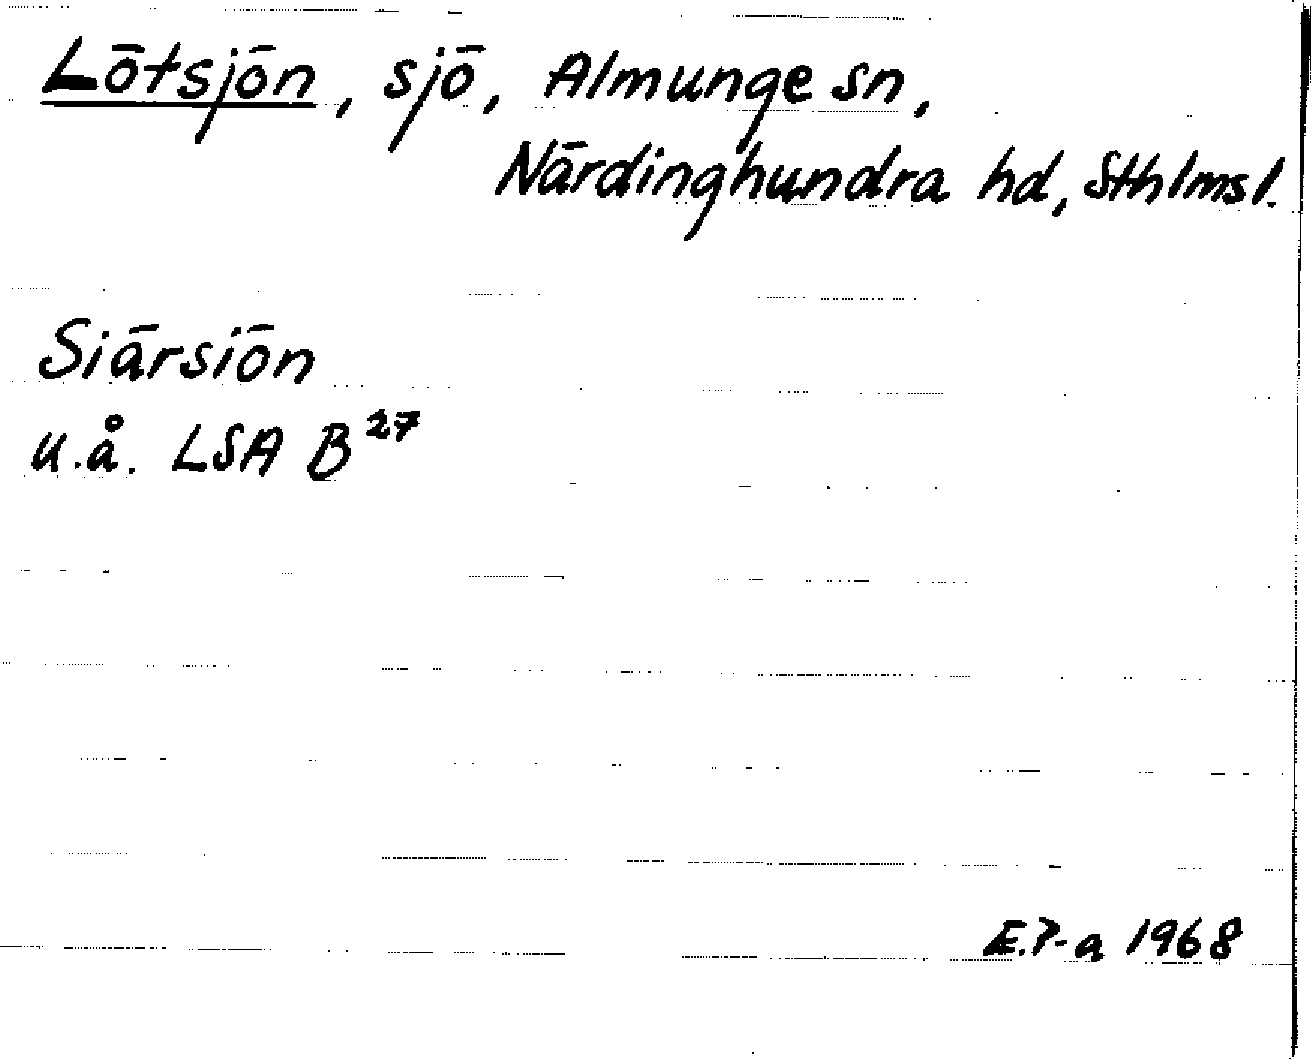 Lötsjön, sjö, Almunge sn,
Närdinghundra hd, Sthlms l.
Siärsiön
u.å. LSA B²⁷
E.P-a 1968